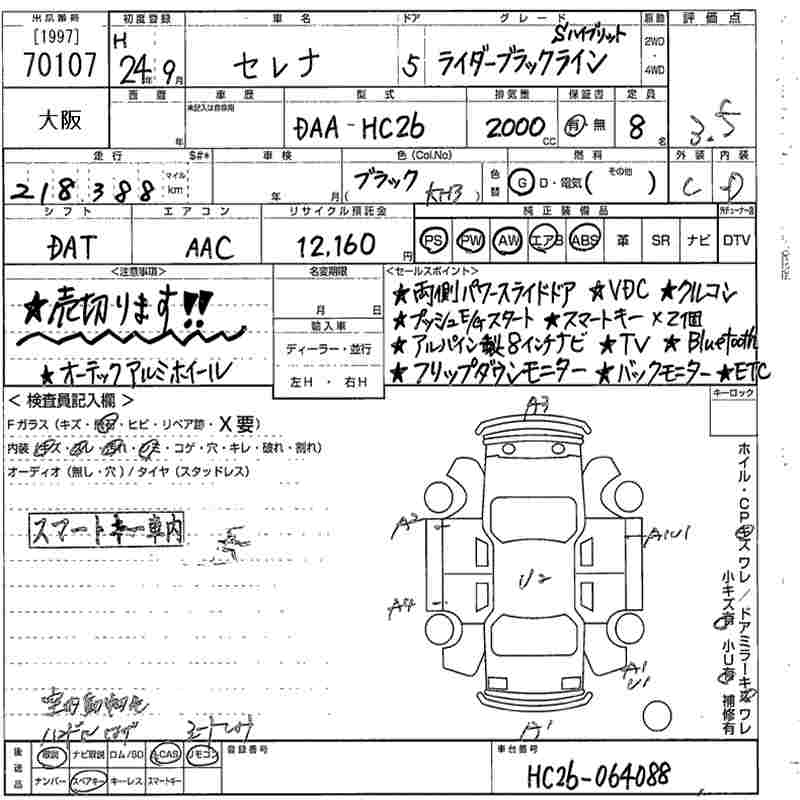 出品番号 初度登録 車名 ドア グレード 原動 評価点
[1997] 70107 H 24年9月 セレナ 5 Sハイブリット ライダーブラックライン 2WD・4WD 3.5
大阪 西暦 年 車歴 未記入は自家用 型式 DAA-HC26 排気量 2000cc 保証書 有・無 定員 8名
走行 $#* 車検 色(Col.No) 燃料 外装 内装
218,388 マイル km 年 月 ブラック (KH3) 色替 G D・電気( その他 ) C D
シフト エアコン リサイクル預託金 純正装備品
DAT AAC 12,160円 PS PW AW エアB ABS 革 SR ナビ DTV
<注意事項> 名変期限 <セールスポイント>
★売切ります!! 月 日 ★両側パワースライドドア ★VDC ★クルコン
輸入車 ★プッシュE/Gスタート ★スマートキー×2個
ディーラー・並行 ★アルパイン製8インチナビ ★TV ★Bluetooth
★オーテックアルミホイール 左H・右H ★フリップダウンモニター ★バックモニター ★ETC
<検査員記入欄> キーロック
Fガラス(キズ・飛石・ヒビ・リペア跡・X要)
内装(キズ・スレ・汚れ・シミ・コゲ・穴・キレ・破れ・割れ)
オーディオ(無し・穴)/タイヤ(スタッドレス)
スマートキー車内
A3
A2
U2
A4
A1
U1
A1
ホイル・CPキズワレ/ドアミラーキズワレ
小キズ有 小U有 補修有
ハンドル
後送品 取説 ナビ取説 ロム/SD B-CAS リモコン 登録番号 車台番号
ナンバー スペアキー キーレス スマートキー HC26-064088